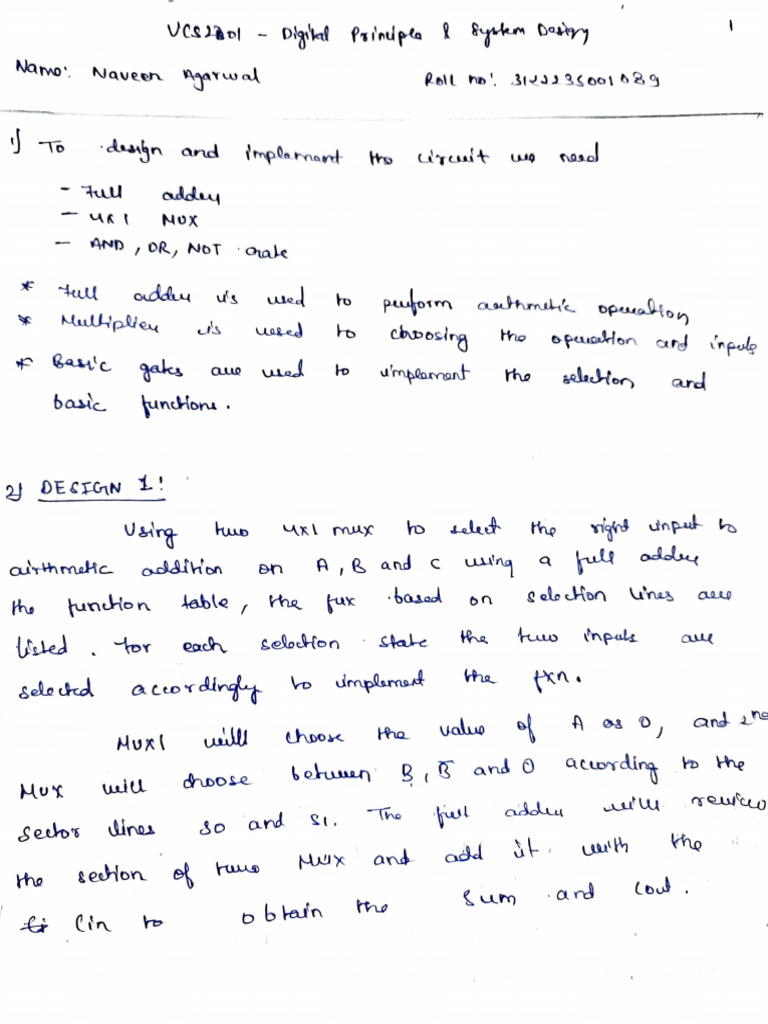 1
UCS2201 - Digital Principle & System Design
Name: Naveen Agarwal Roll no: 3122235001089
1) To design and implement the circuit we need
- Full adder
- 4x1 MUX
- AND, OR, NOT Gate
* Full adder is used to perform arithmetic operation
* Multiplier is used to choosing the operation and inputs
* Basic gates are used to implement the selection and
basic functions.
2) DESIGN 1:
Using two 4x1 mux to select the right input to
airthmetic addition on A, B and C using a full adder
the function table, the fux based on selection lines are
listed. for each selection state the two inputs are
selected accordingly to implement the fxn.
MUX1 will choose the value of A as 0, and 2nd
Mux will choose between B, B̅ and 0 according to the
sector lines S0 and S1. The full adder will
the section of two MUX and add it with the
Cin to obtain the sum and Cout.